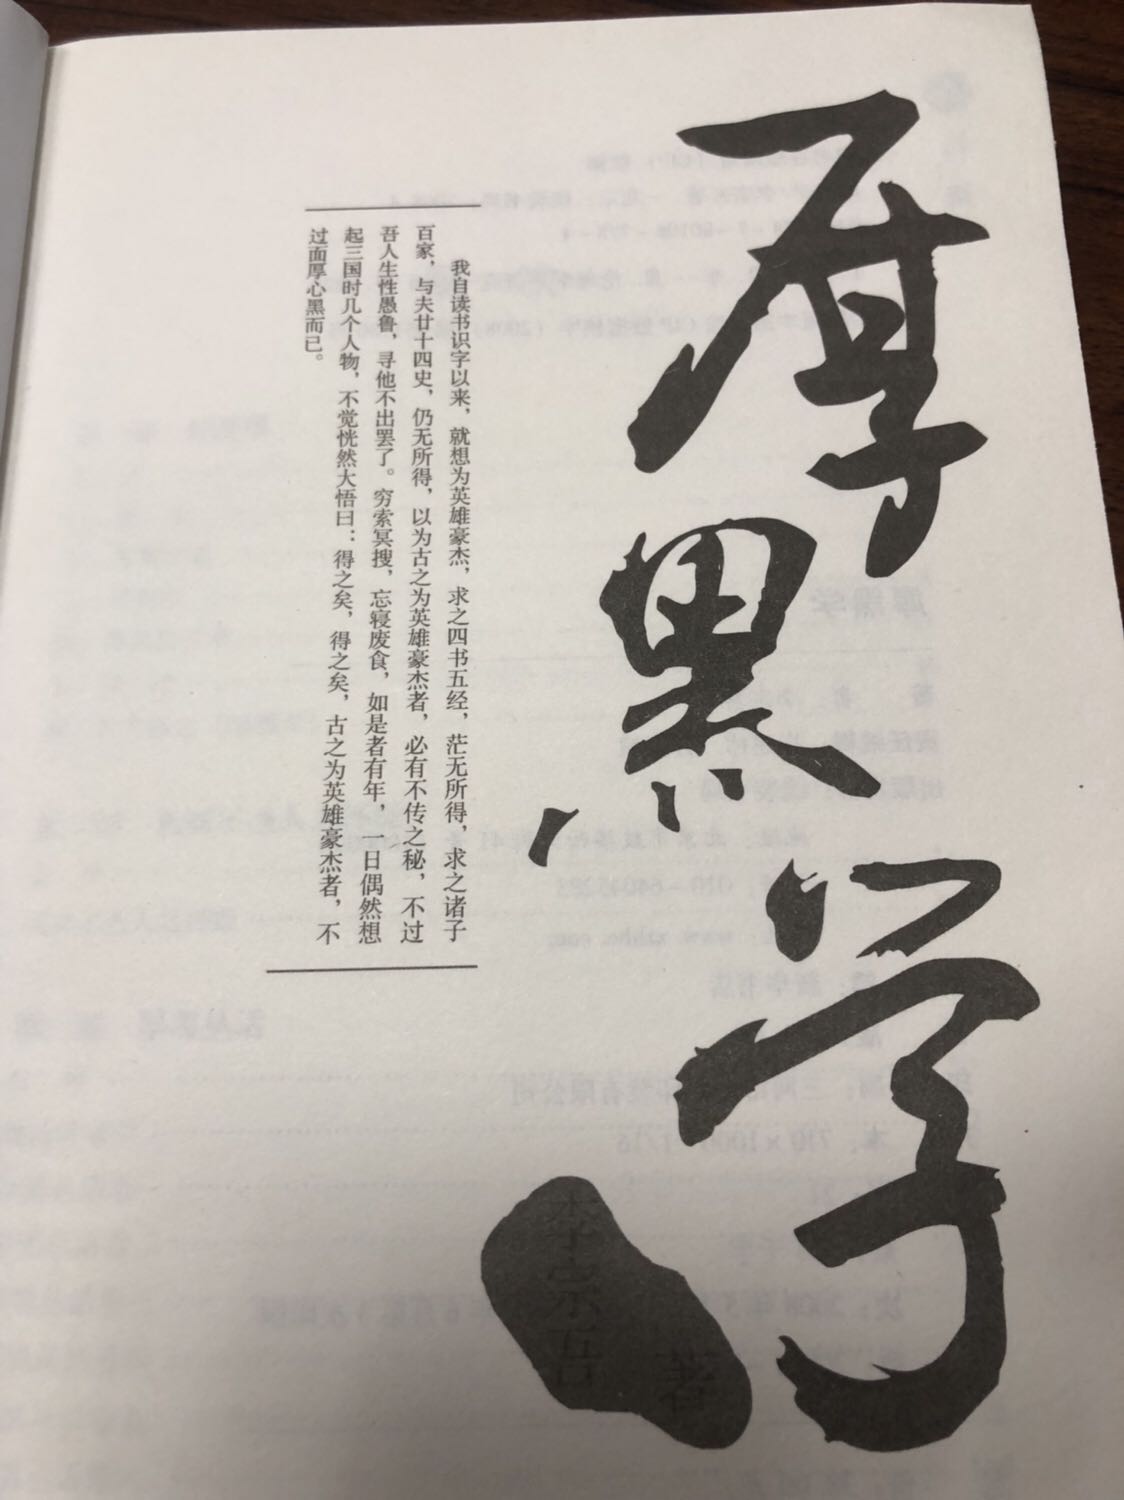 厚黑学
李宗吾
著
我自读书识字以来，就想为英雄豪杰，求之四书五经，茫无所得，求之诸子
百家，与夫廿十四史，仍无所得，以为古之为英雄豪杰者，必有不传之秘，不过
吾人生性愚鲁，寻他不出罢了。穷索冥搜，忘寝废食，如是者有年，一日偶然想
起三国时几个人物，不觉恍然大悟曰：得之矣，得之矣，古之为英雄豪杰者，不
过面厚心黑而已。